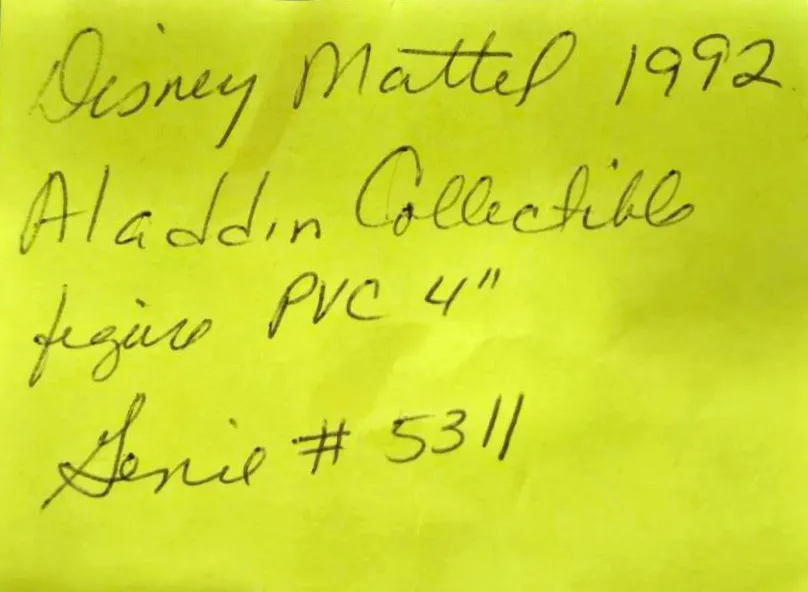 Disney Mattel 1992
Aladdin Collectible
figure PVC 4"
Genie # 5311